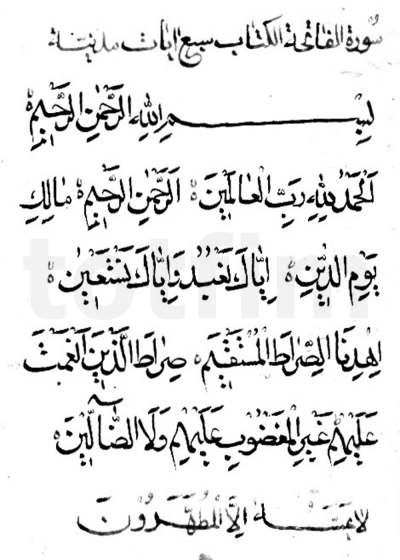 سُورة الفاتحة الكتاب سبع ايات مدنية
بِسْمِ اللهِ الرَّحْمٰنِ الرَّحِيْمِ
اَلْحَمْدُ لِلّٰهِ رَبِّ الْعَالَمِيْنَ اَلرَّحْمٰنِ الرَّحِيْمِ مَالِكِ
يَوْمِ الدِّيْنِ اِيَّاكَ نَعْبُدُ وَاِيَّاكَ نَسْتَعِيْنُ
اِهْدِنَا الصِّرَاطَ الْمُسْتَقِيْمَ صِرَاطَ الَّذِيْنَ اَنْعَمْتَ
عَلَيْهِمْ غَيْرِ الْمَغْضُوْبِ عَلَيْهِمْ وَلَا الضَّآلِّيْنَ
لا يَمَسُّهُ اِلَّا الْمُطَهَّرُوْنَ
totfim